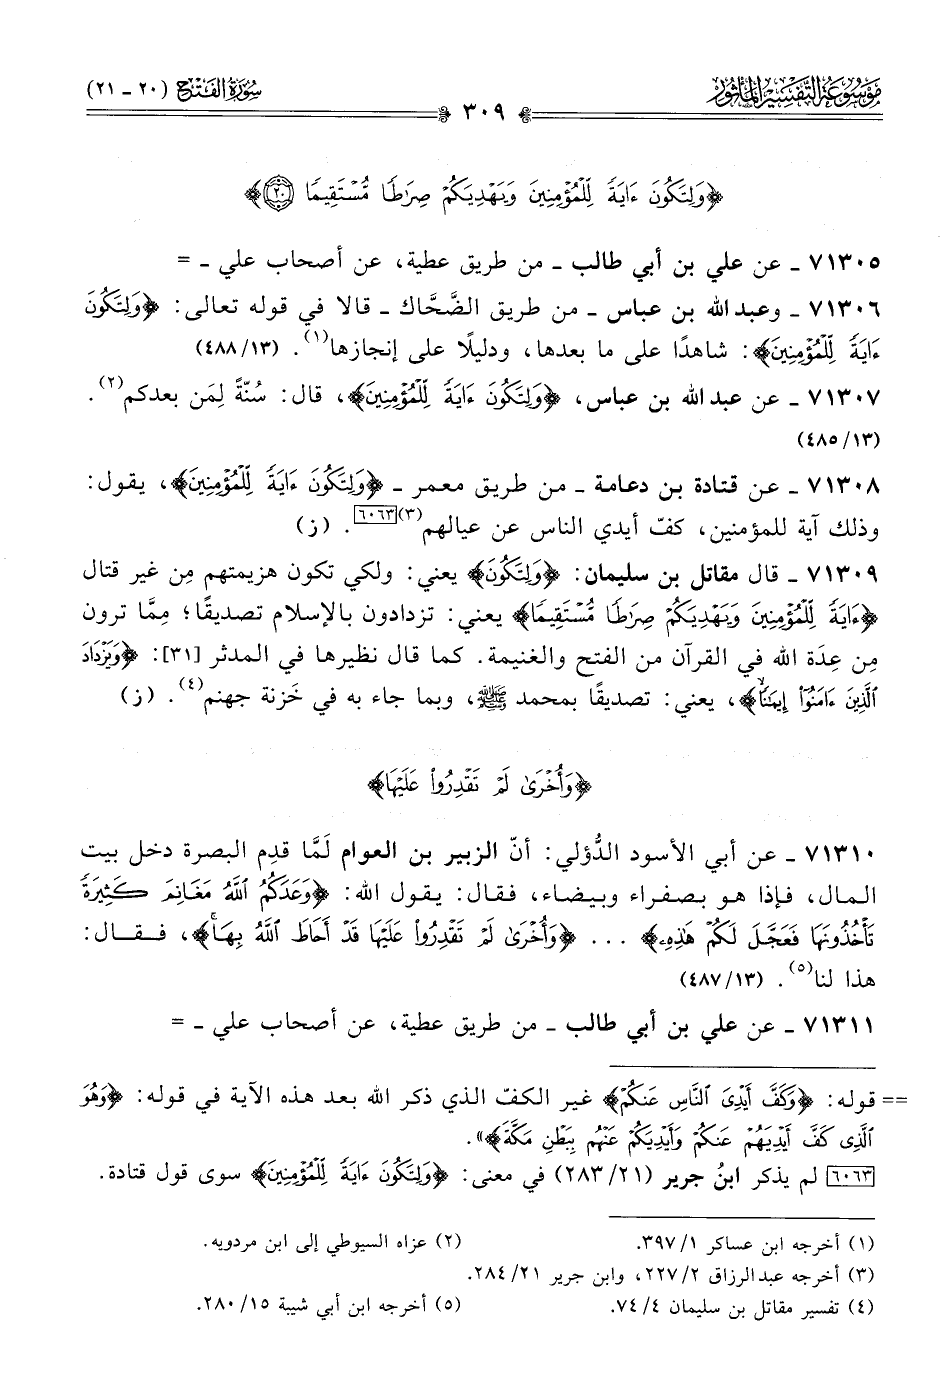 موسوعة التفسير المأثور
سورة الفتح (٢٠ - ٢١)
٣٠٩
﴿وَلِتَكُونَ ءَايَةً لِّلْمُؤْمِنِينَ وَيَهْدِيَكُمْ صِرَٰطًا مُّسْتَقِيمًا ٢٠﴾
٧١٣٠٥ ـ عن علي بن أبي طالب ـ من طريق عطية، عن أصحاب علي ـ =
٧١٣٠٦ ـ وعبد الله بن عباس ـ من طريق الضَّحَّاك ـ قالا في قوله تعالى: ﴿وَلِتَكُونَ
ءَايَةً لِّلْمُؤْمِنِينَ﴾: شاهدًا على ما بعدها، ودليلًا على إنجازها(١). (١٣/ ٤٨٨)
٧١٣٠٧ ـ عن عبد الله بن عباس، ﴿وَلِتَكُونَ ءَايَةً لِّلْمُؤْمِنِينَ﴾، قال: سُنَّةً لِمَن بعدكم(٢).
(١٣/ ٤٨٥)
٧١٣٠٨ ـ عن قتادة بن دعامة ـ من طريق معمر ـ ﴿وَلِتَكُونَ ءَايَةً لِّلْمُؤْمِنِينَ﴾، يقول:
وذلك آية للمؤمنين، كفّ أيدي الناس عن عيالهم(٣)[٦٠٦٣]. (ز)
٧١٣٠٩ ـ قال مقاتل بن سليمان: ﴿وَلِتَكُونَ﴾ يعني: ولكي تكون هزيمتهم مِن غير قتال
﴿ءَايَةً لِّلْمُؤْمِنِينَ وَيَهْدِيَكُمْ صِرَٰطًا مُّسْتَقِيمًا﴾ يعني: تزدادون بالإسلام تصديقًا؛ مِمَّا ترون
مِن عِدَة الله في القرآن من الفتح والغنيمة. كما قال نظيرها في المدثر [٣١]: ﴿وَيَزْدَادَ
ٱلَّذِينَ ءَامَنُوٓاْ إِيمَٰنًا﴾، يعني: تصديقًا بمحمد ﷺ، وبما جاء به في خَزنة جهنم(٤). (ز)
﴿وَأُخْرَىٰ لَمْ تَقْدِرُواْ عَلَيْهَا﴾
٧١٣١٠ ـ عن أبي الأسود الدُّؤلي: أنّ الزبير بن العوام لَمَّا قدِم البصرة دخل بيت
المال، فإذا هو بصفراء وبيضاء، فقال: يقول الله: ﴿وَعَدَكُمُ ٱللَّهُ مَغَانِمَ كَثِيرَةً
تَأْخُذُونَهَا فَعَجَّلَ لَكُمْ هَٰذِهِۦ﴾ ... ﴿وَأُخْرَىٰ لَمْ تَقْدِرُواْ عَلَيْهَا قَدْ أَحَاطَ ٱللَّهُ بِهَا﴾، فقال:
هذا لنا(٥). (١٣/ ٤٨٧)
٧١٣١١ ـ عن علي بن أبي طالب ـ من طريق عطية، عن أصحاب علي ـ =
== قوله: ﴿وَكَفَّ أَيْدِىَ ٱلنَّاسِ عَنكُمْ﴾ غير الكفّ الذي ذكر الله بعد هذه الآية في قوله: ﴿وَهُوَ
ٱلَّذِى كَفَّ أَيْدِيَهُمْ عَنكُمْ وَأَيْدِيَكُمْ عَنْهُم بِبَطْنِ مَكَّةَ﴾».
[٦٠٦٣] لم يذكر ابنُ جرير (٢١/ ٢٨٣) في معنى: ﴿وَلِتَكُونَ ءَايَةً لِّلْمُؤْمِنِينَ﴾ سوى قول قتادة.
(١) أخرجه ابن عساكر ١/ ٣٩٧. (٢) عزاه السيوطي إلى ابن مردويه.
(٣) أخرجه عبد الرزاق ٢/ ٢٢٧، وابن جرير ٢١/ ٢٨٤.
(٤) تفسير مقاتل بن سليمان ٤/ ٧٤. (٥) أخرجه ابن أبي شيبة ١٥/ ٢٨٠.